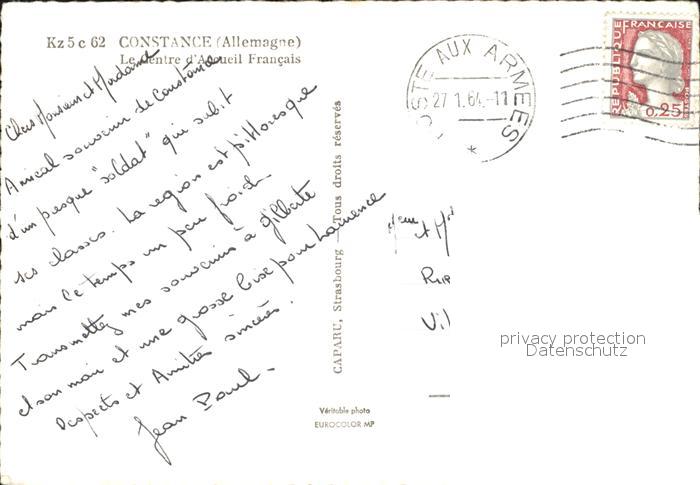 Kz 5 c 62 CONSTANCE (Allemagne)
Le Centre d'Accueil Français
Chers Monsieur et Madame
Amical souvenir de Constance
d'un presque "soldat" qui subit
ses classes. La région est pittoresque
mais le temps un peu froid.
Transmettez mes souvenirs à Gilberte
et son mari et une grosse bise pour Laurence
Respects et Amitiés sincères.
Jean Paul.
CAPARU, Strasbourg — Tous droits réservés
Véritable photo
EUROCOLOR MP
POSTE AUX ARMEES
27 1.64.-11
*
REPUBLIQUE FRANÇAISE
0,25
POSTES
Mme et Mr
Rue
Vil
privacy protection
Datenschutz